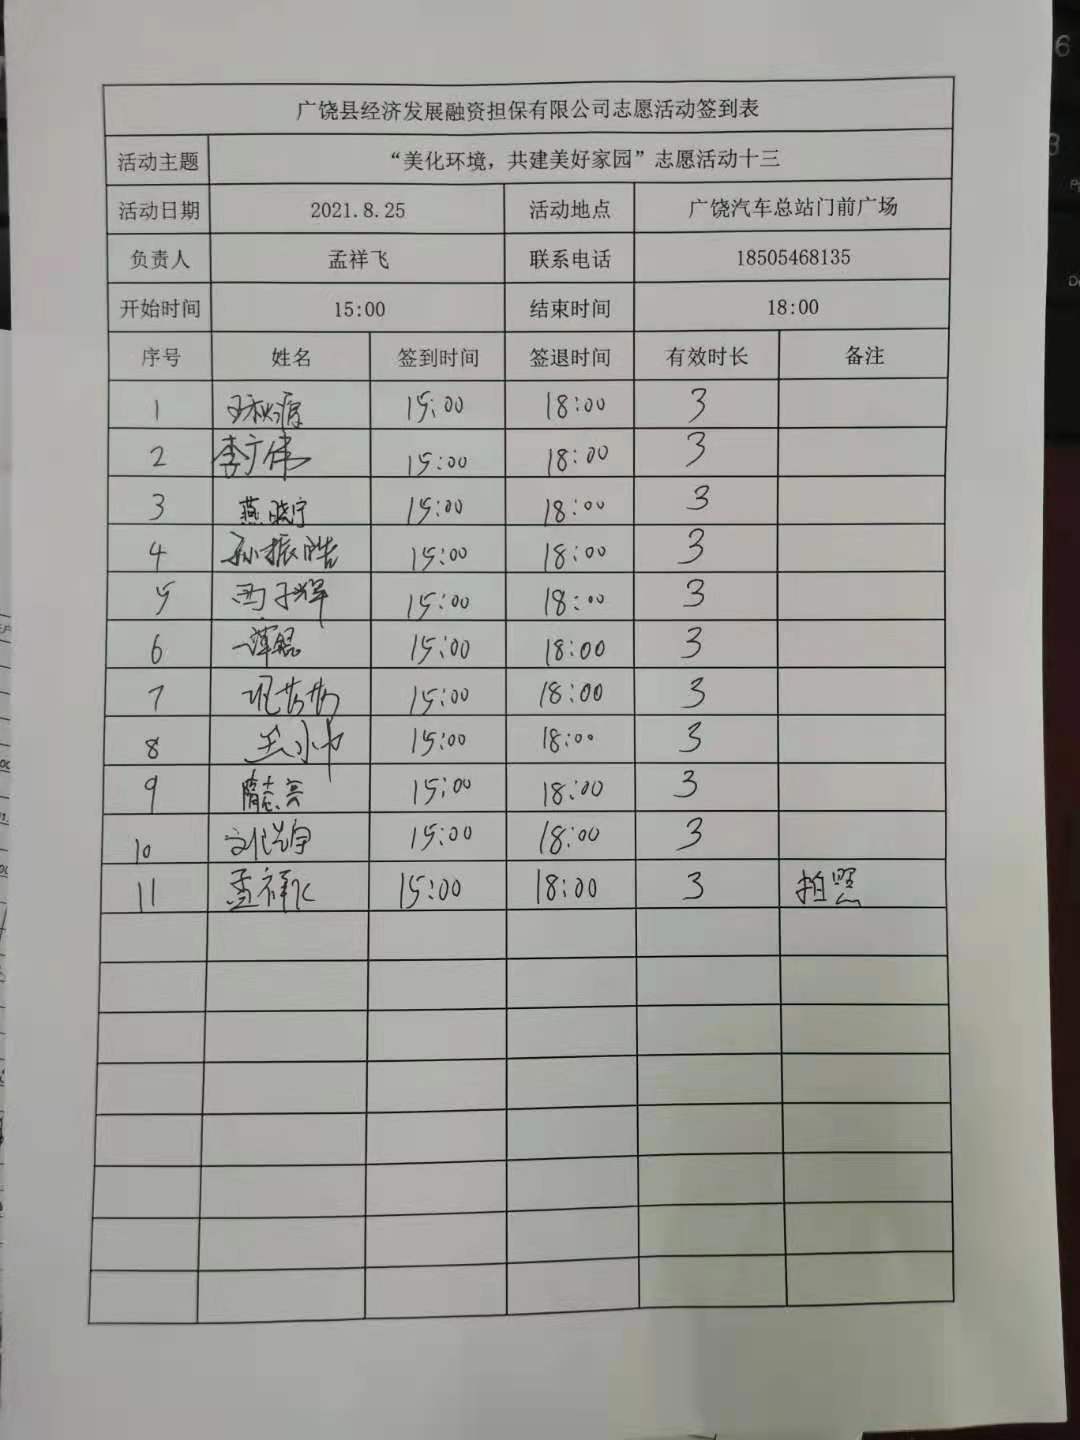 广饶县经济发展融资担保有限公司志愿活动签到表
活动主题 “美化环境，共建美好家园”志愿活动十三
活动日期 2021.8.25 活动地点 广饶汽车总站门前广场
负责人 孟祥飞 联系电话 18505468135
开始时间 15:00 结束时间 18:00
序号 姓名 签到时间 签退时间 有效时长 备注
1 15:00 18:00 3
2 李广伟 15:00 18:00 3
3 燕晓宁 15:00 18:00 3
4 孙振皓 15:00 18:00 3
5 15:00 18:00 3
6 15:00 18:00 3
7 15:00 18:00 3
8 15:00 18:00 3
9 隋志兴 15:00 18:00 3
10 15:00 18:00 3
11 孟祥飞 15:00 18:00 3 拍照